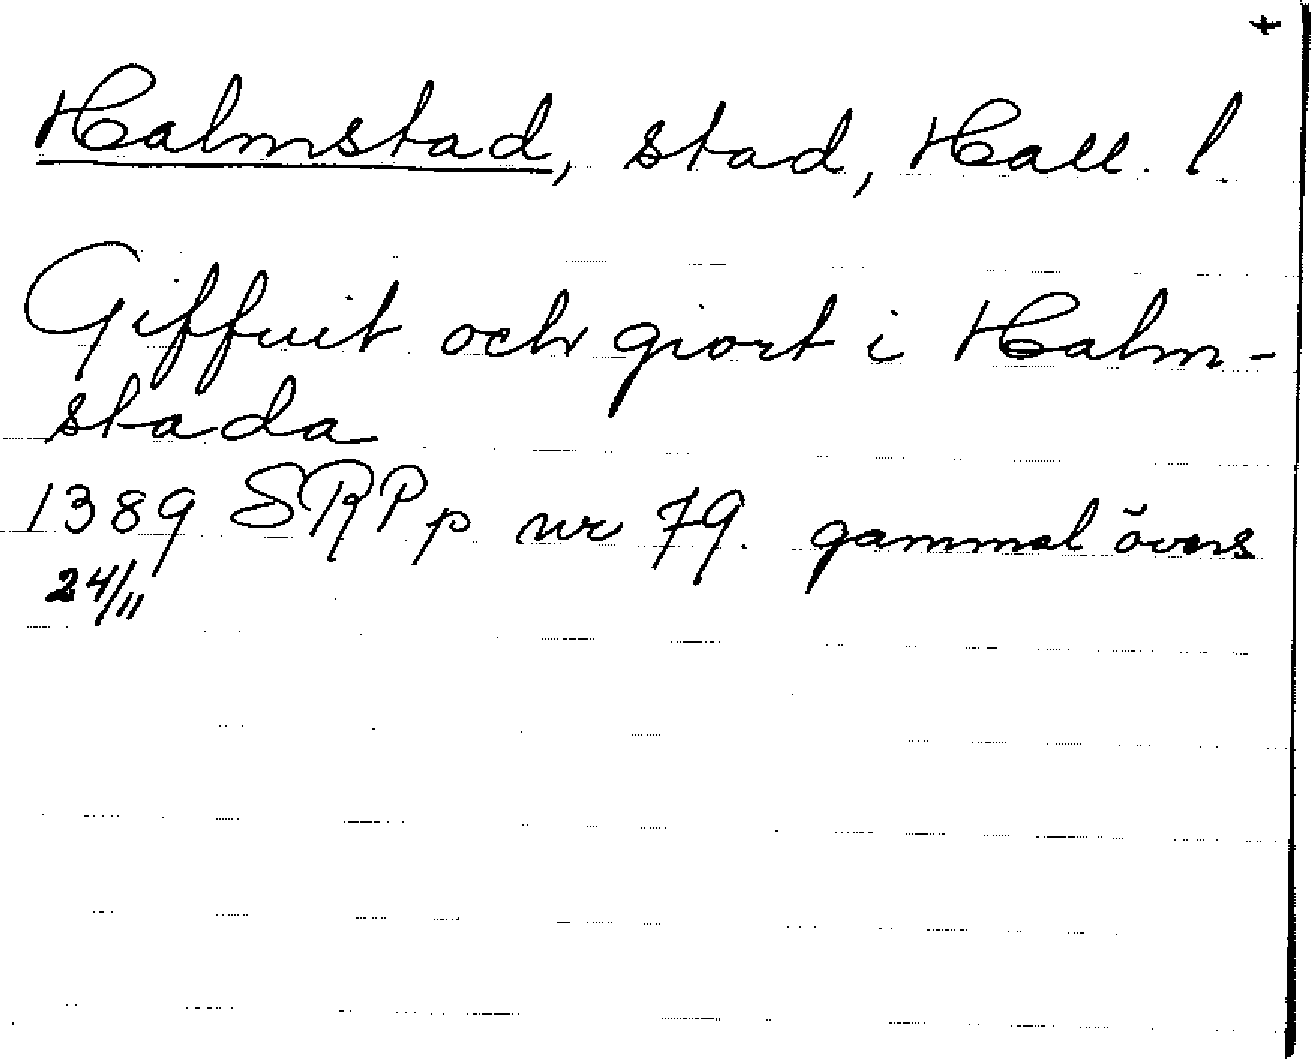 +
Halmstad, stad, Hall. l.
Giffuit och giort i Halm-
stada
1389 SRPp nr 79. gammal övers
24/11